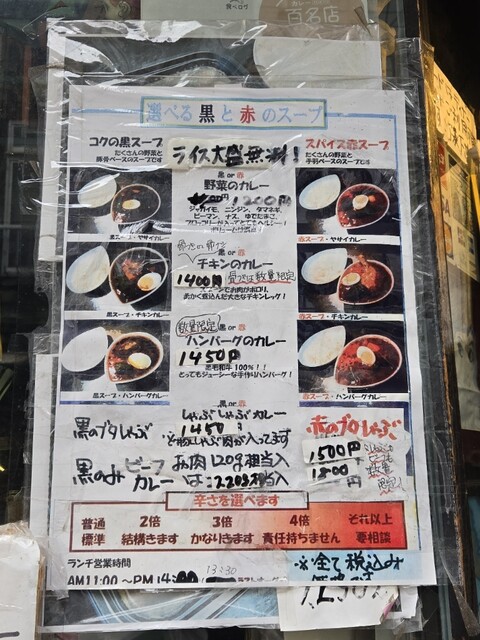 食べログ
カレー
百名店
選べる 黒 と 赤 のスープ
コクの黒スープ
たくさんの野菜と
豚骨ベースのスープです
ライス大盛無料!
スパイス赤スープ
たくさんの野菜と
手羽ベースのスープです
黒 or 赤
野菜のカレー
1200円
ジャガイモ、ニンジン、タマネギ、
ピーマン、ナス、ゆでたまご、
黒スープ・ヤサイカレー
赤スープ・ヤサイカレー
黒 or 赤
チキンのカレー
1400円 骨付は数量限定
スプーンでお肉がホロリ、
黒スープ・チキンカレー
赤スープ・チキンカレー
数量限定
黒 or 赤
ハンバーグのカレー
1450円
黒毛和牛100%!!
とってもジューシーな手作りハンバーグ!
黒スープ・ハンバーグカレー
赤スープ・ハンバーグカレー
黒 or 赤
しゃぶしゃぶカレー
1450円
黒のブタしゃぶ
赤のブタしゃぶ
黒のみ ビーフカレー
お肉120g相当入
1500円
1800円
辛さを選べます
普通 2倍 3倍 4倍 それ以上
標準 結構きます かなりきます 責任持ちません 要相談
ランチ営業時間
13:30
※全て税込み
AM11:00 ~PM14:00